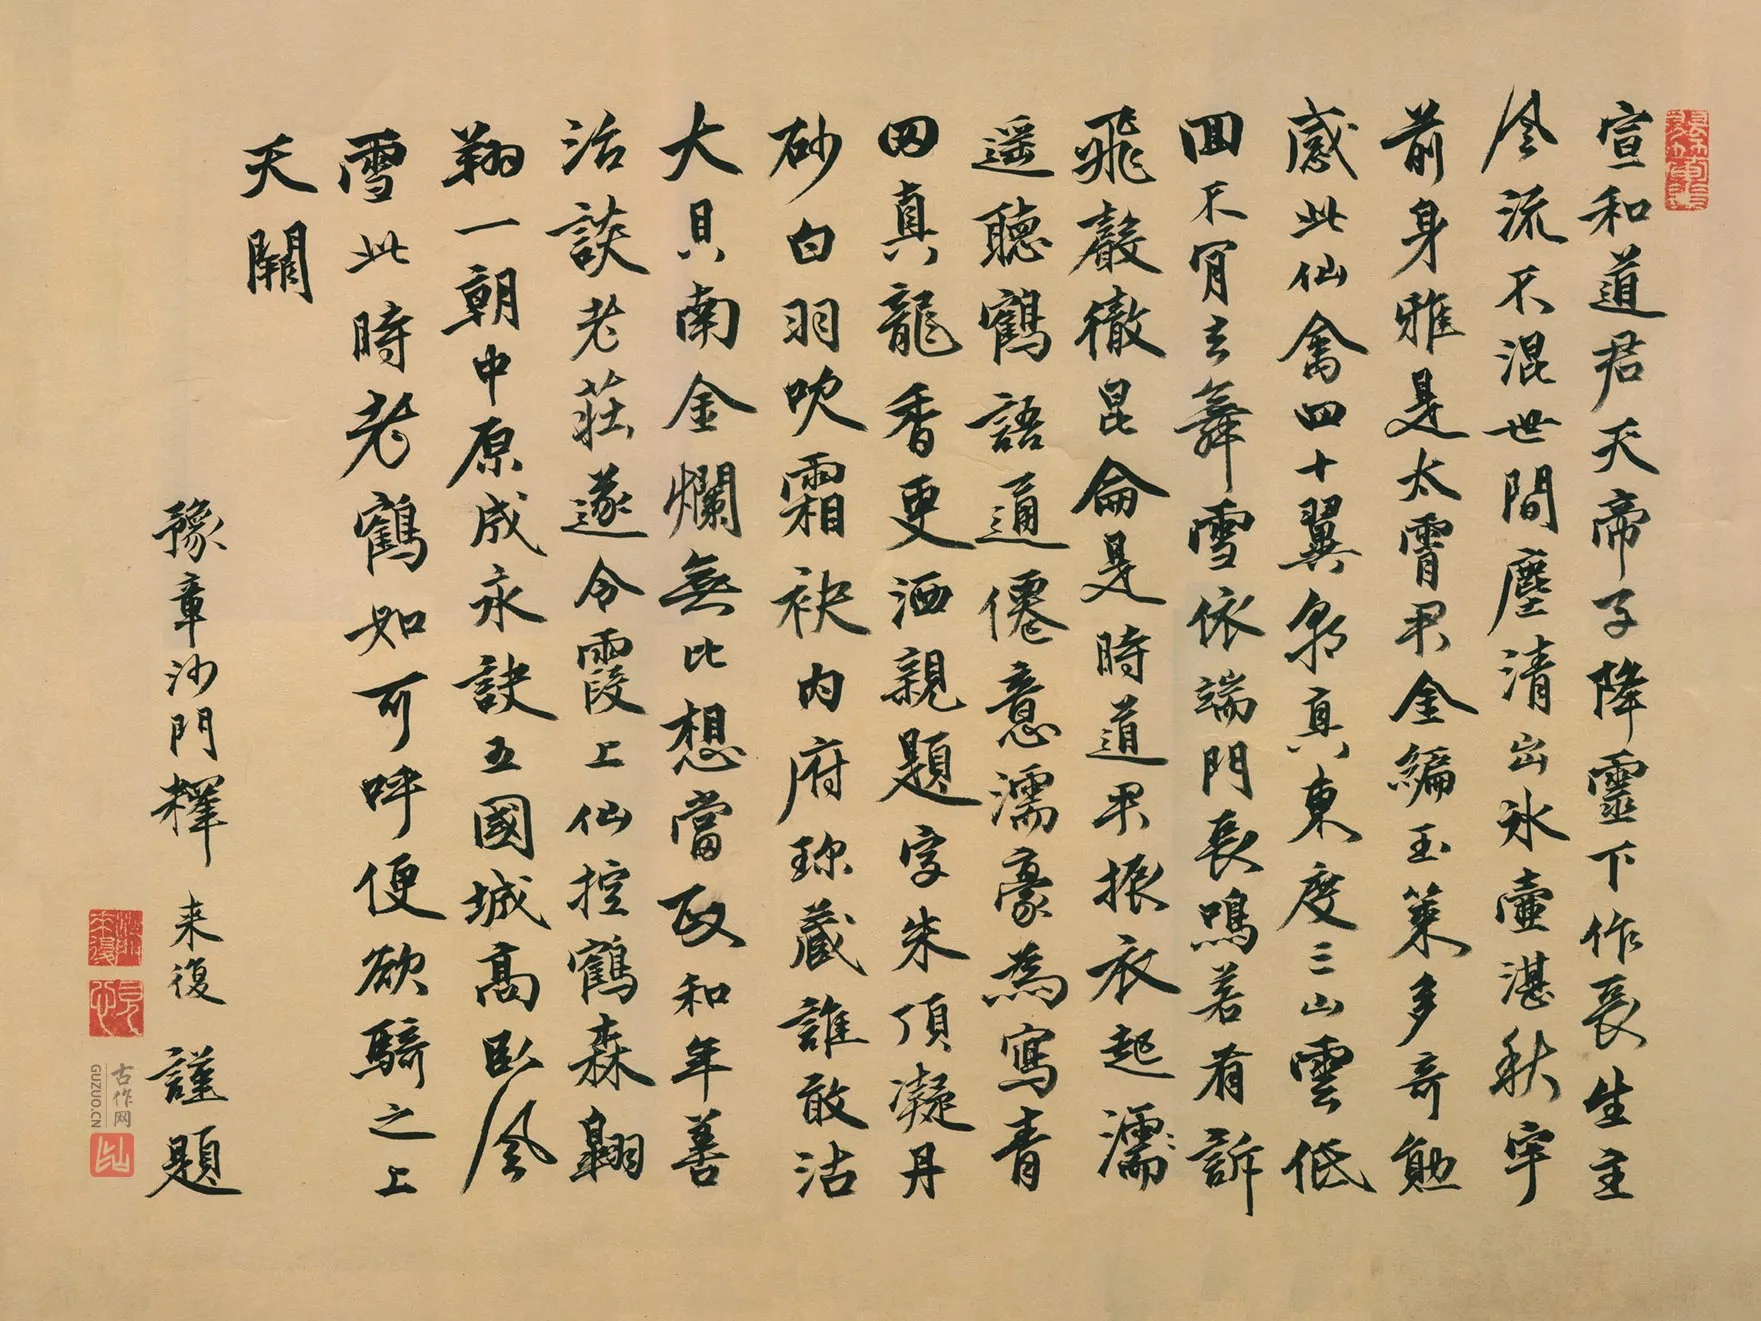 宣和道君天帝子降靈下作長生主
風流不混世間塵清出冰壺湛秋宇
前身雅是太霄君金編玉策多奇勛
感此仙禽四十翼朝真東度三山雲低
回不肯去舞雪依端門長鳴若有訴
飛聲徹昆侖是時道君振衣起濡
遥聽鶴語通僊意濡豪為寫青
田真龍香更洒親題字朱頂凝丹
砂白羽吹霜袂内府珎藏誰敢沽
大貝南金爛無比想當政和年善
治談老莊遂令霞上仙控鶴森翱
翔一朝中原成永訣五國城高卧風
雪此時老鶴如可呼便欲騎之上
天闕
豫章沙門釋 来復 謹題
古作网
GUZUO.CN